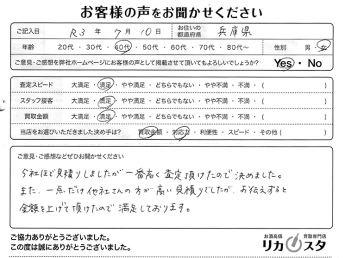 お客様の声をお聞かせください
ご記入日 R3年 7月 10日 お住いの都道府県 兵庫県
年齢 20代・30代・40代・50代・60代・70代・80代〜 性別 男・女
ご意見・ご感想を弊社ホームページにお客様の声として掲載させて頂いてもよろしいでしょうか? Yes・No
査定スピード 大満足・満足・やや満足・どちらでもない・やや不満・不満・( )
スタッフ接客 大満足・満足・やや満足・どちらでもない・やや不満・不満・( )
買取金額 大満足・満足・やや満足・どちらでもない・やや不満・不満・( )
当店をお選びいただきました決め手は? 買取金額・対応力・利便性・スピード・その他( )
ご意見・ご感想などぜひお聞かせください
今社ほど見積りしましたが一番高く査定頂けたので決めました。
また、一点だけ他社さんの方が高い見積りでしたが、お伝えすると
金額を上げて頂けたので満足しております。
ご協力ありがとうございました。
この度は誠にありがとうございました。
お酒高価 買取専門店
リカスタ